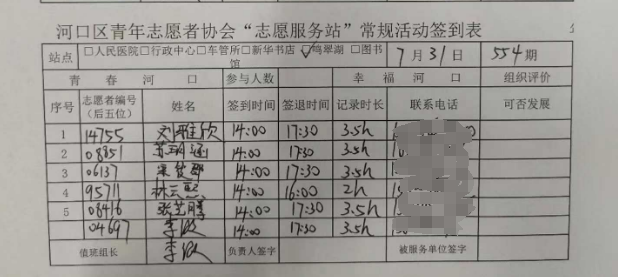 河口区青年志愿者协会“志愿服务站”常规活动签到表
站点 □人民医院□行政中心□车管所□新华书店 ☑鸣翠湖 □图书馆 7月31日 554期
青春河口 参与人数 幸福河口 组织评价
序号 志愿者编号（后五位） 姓名 签到时间 签退时间 记录时长 联系电话 可否发展
1 14755 刘雅欣 14:00 17:30 3.5h
2 08851 14:00 17:30 3.5h
3 06137 14:00 17:30 3.5h
4 95711 林云熙 14:00 16:00 2h
5 08416 张艺腾 14:00 17:30 3.5h
04697 李政 14:00 17:30 3.5h
值班组长 李政 负责人签字 被服务单位签字